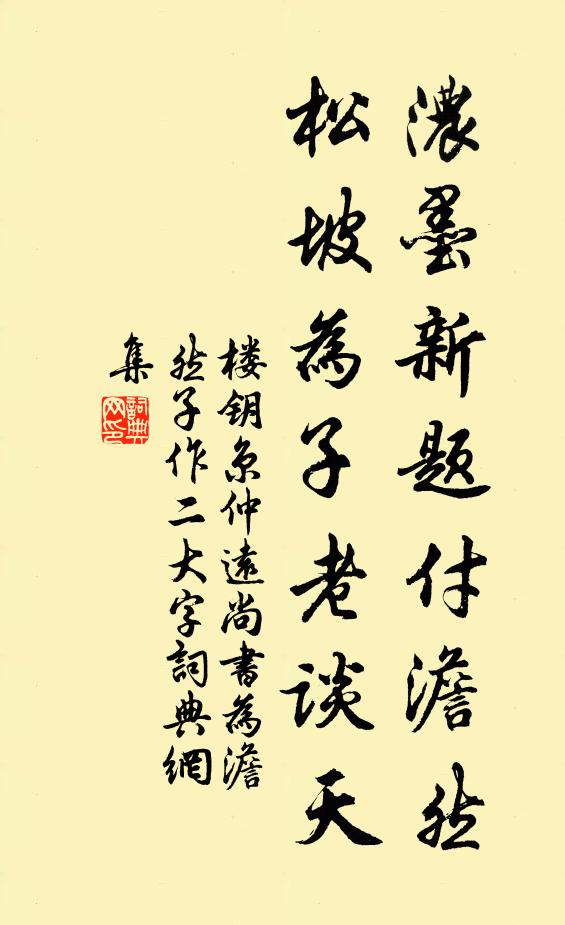 濃墨新题付澹然
松坡為子老谈天
楼钥京仲遠尚書為澹
然子作二大字詞典網
集
詞典
网印